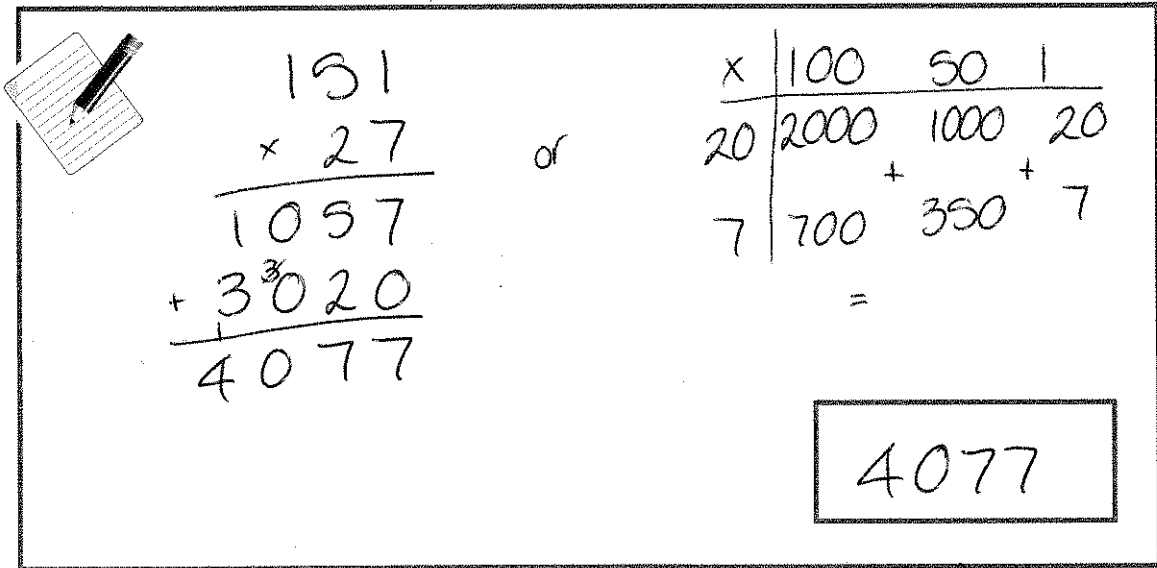 151
× 27
1057
+ 3³020
1
4077
or
× 100 50 1
20 2000 1000 20
+ +
7 700 350 7
=
4077